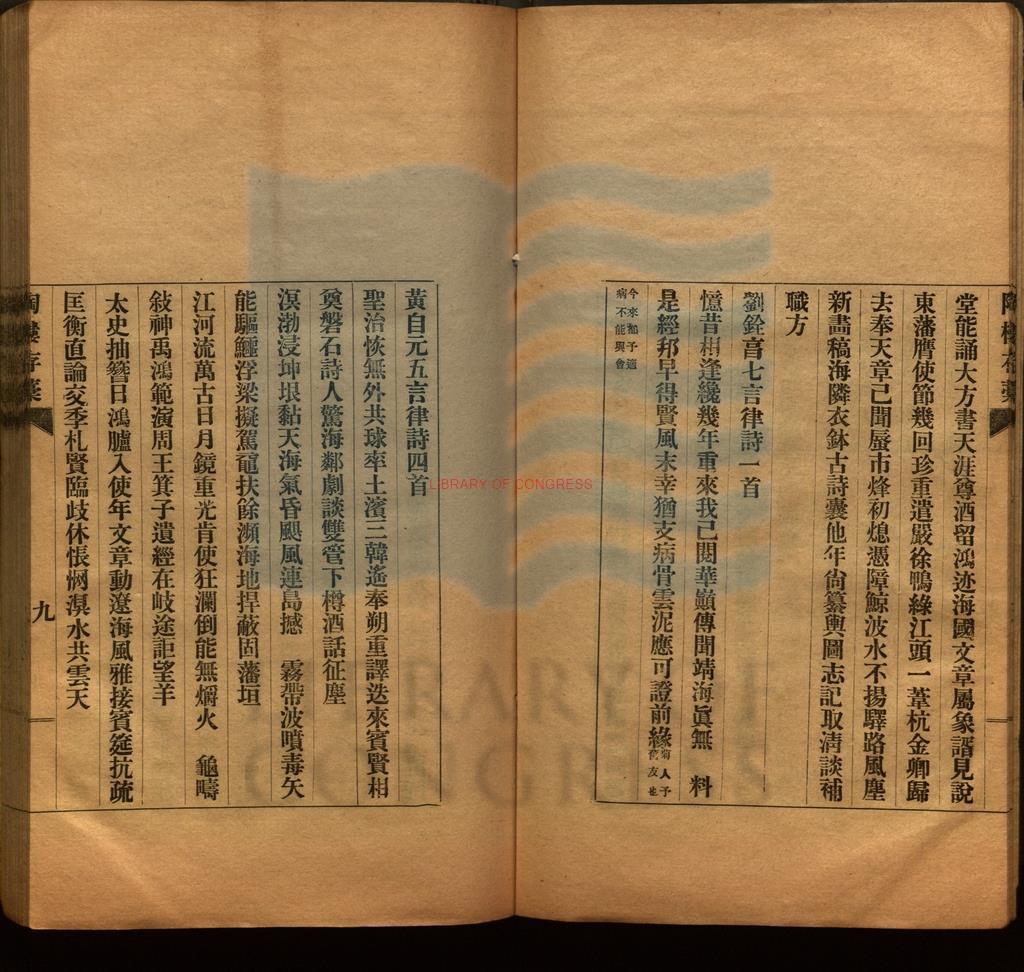 堂能誦大方書天涯尊酒留鴻迹海國文章屬象諝見說
東藩膺使節幾回珍重遣嚴徐鴨綠江頭一葦杭金卿歸
去奉天章已聞蜃市烽初熄憑障鯨波水不揚驛路風塵
新畵稿海隣衣鉢古詩囊他年尙纂輿圖志記取淸談補
職方
劉銓亯七言律詩一首
憶昔相逢纔幾年重來我已閱華巔傳聞靖海眞無 料
是經邦早得賢風末幸猶支病骨雲泥應可證前緣菊人予舊友也
今來都予適
病不能與會
黃自元五言律詩四首
聖治恢無外共球率土濱三韓遙奉朔重譯迭來賓賢相
奠磐石詩人驚海鄰劇談雙管下樽酒話征塵
溟渤浸坤垠黏天海氣昏颶風連島撼 霧帶波噴毒矢
能驅鱷浮梁擬駕黿扶餘瀕海地捍蔽固藩垣
江河流萬古日月鏡重光肯使狂瀾倒能無爝火 龜疇
敍神禹鴻範演周王箕子遺經在岐途詎望羊
太史抽簪日鴻臚入使年文章動遼海風雅接賓筵抗疏
匡衡直論交季札賢臨歧休悵惘溟水共雲天
九
LIBRARY OF CONGRESS